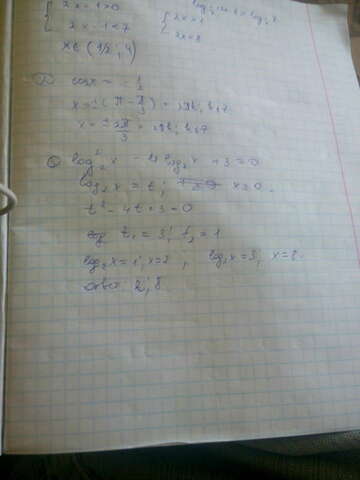 2x - 1 > 0
2x - 1 < 7
2x > 1
2x < 8
x ∈ (1/2; 4)
2) cos x = - 1/2
x = ± (π - π/3) + 2πk, k∈Z
x = ± 2π/3 + 2πk, k∈Z
log₂² x - 4 log₂ x + 3 = 0
log₂ x = t; x > 0
t² - 4t + 3 = 0
t₁ = 3; t₂ = 1
log₂ x = 1; x = 2, log₂ x = 3; x = 8.
Ответ: 2; 8.